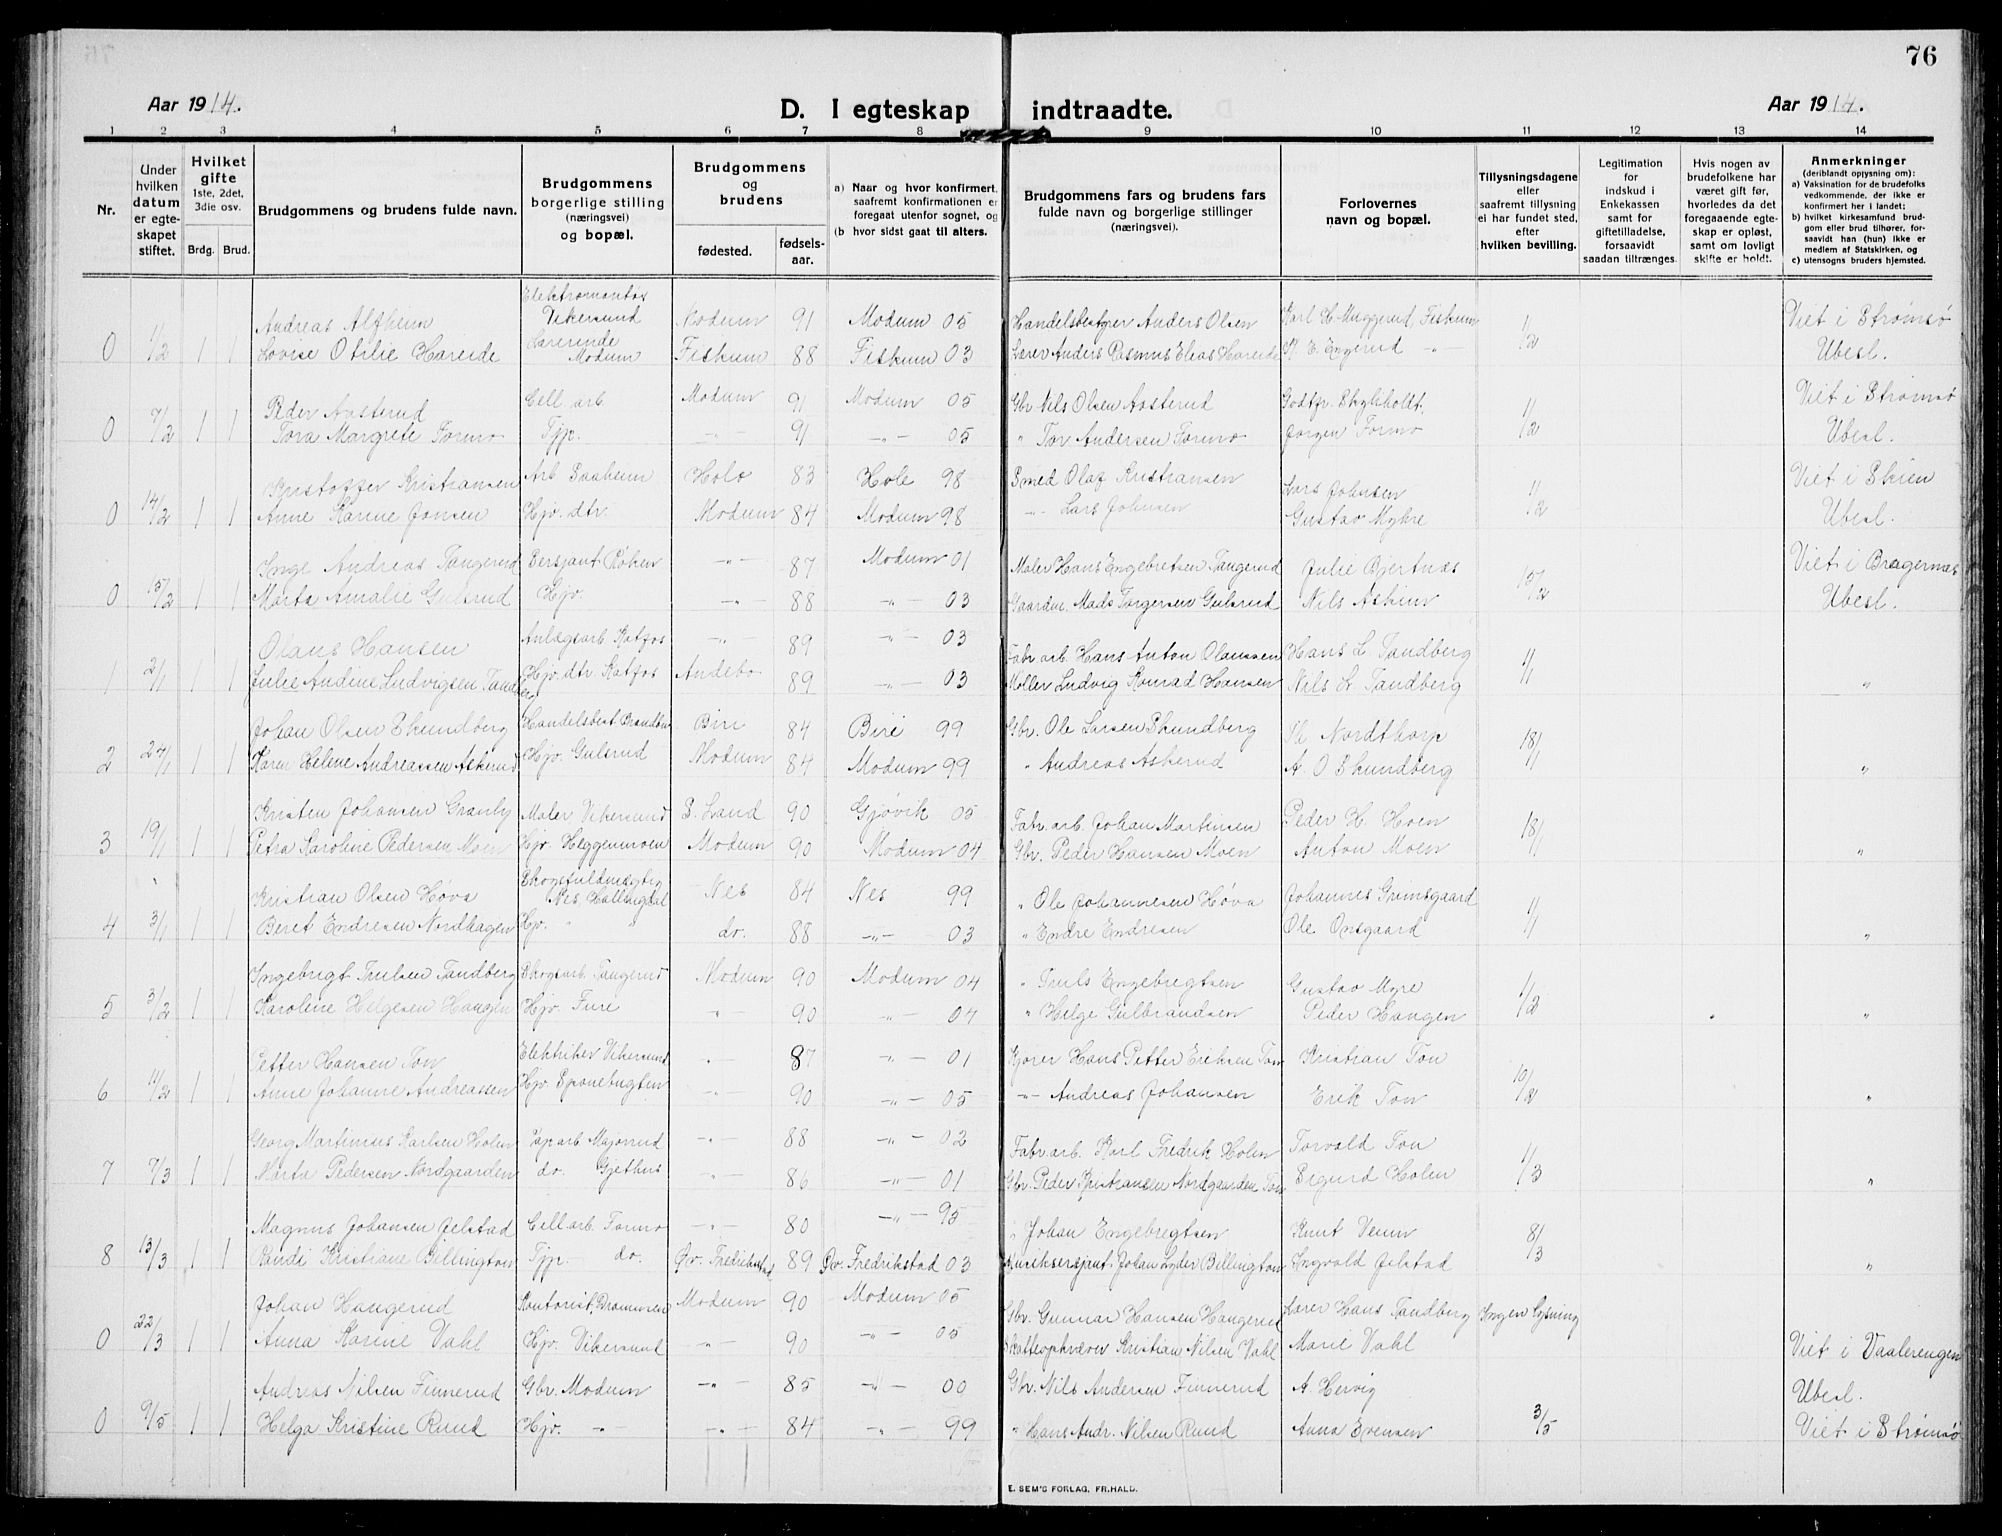 76
Aar 1914.
D. I egteskap indtraadte.
Aar 1914.
1 2 3 4 5 6 7 8 9 10 11 12 13 14
Nr.
Under hvilken datum er egteskapet stiftet.
Hvilket gifte 1ste, 2det, 3die osv.
Brdg. Brud.
Brudgommens og brudens fulde navn.
Brudgommens borgerlige stilling (næringsvei) og bopæl.
Brudgommens og brudens
fødested. fødselsaar.
a) Naar og hvor konfirmert, saafremt konfirmationen er foregaat utenfor sognet, og
b) hvor sidst gaat til alters.
Brudgommens fars og brudens fars fulde navn og borgerlige stillinger (næringsvei).
Forlovernes navn og bopæl.
Tillysningsdagene eller saafremt tillysning ei har fundet sted, efter hvilken bevilling.
Legitimation for indskud i Enkekassen samt for giftetilladelse, forsaavidt saadan tiltrænges.
Hvis nogen av brudefolkene har været gift før, hvorledes da det foregaaende egteskap er opløst, samt om lovligt skifte er holdt.
Anmerkninger (deriblandt opysning om):
a) Vaksination for de brudefolks vedkommende, der ikke er konfirmert her i landet;
b) hvilket kirkesamfund brudgom eller brud tilhører, forsaavidt han (hun) ikke er medlem af Statskirken, og
c) utensogns bruders hjemsted.
Andreas Alfheim Elektromontør Vikersund Modum 91 Modum 05 Handelsbestyrer Anders Olsen Karl H Muggerud, Fiskum Viet i Strømsø
0 1/2 1 1 Lovise Otilie Hareide Lærerinde Modum Fiskum 88 Fiskum 03 Lærer Anders Rasmus Elias Hareide E. Engerud -"- 1/2 Ubesl.
Peder Aasterud Cell. arb Modum 91 Modum 05 Gbr Nils Olsen Aasterud Godtfr. Skykholdt. Viet i Strømsø
0 7/2 1 1 Tora Margrete Formo Tjp. -"- 91 -"- 05 " Tor Andersen Formo Jørgen Formo 1/2 Ubesl.
Kristoffer Kristiansen Arb Saaheim Hole 83 Hole 98 Smed Olaf Kristiansen Lars Johnsen Viet i Skien
0 14/2 1 1 Anne Karine Jonsen Hjv. dtr. Modum 84 Modum 98 -"- Lars Johnsen Gustav Myhre 1/2 Ubesl.
Inge Andreas Tangerud Sersjant Røken -"- 87 Modum 01 Maler Hans Engebretsen Tangerud Julie Bjertnæs Viet i Bragernæs
0 15/2 1 1 Marta Amalie Gulsrud Hjv. -"- 88 -"- 03 Gaardm. Mads Torgersen Gulsrud Nils Askim 15/2 Ubesl.
Olaus Hansen Anlægsarb Katfos -"- 89 -"- 03 Fabr. arb. Hans Anton Olaussen Hans L Tandberg
1 2/1 1 1 Julie Andine Ludvigsen Hjv. dtr Katfos Andebo 89 -"- 03 Møller Ludvig Konrad Hansen Nils Tandberg 1/1 "
Johan Olsen Skundberg Handelsbest. Biri 84 Biri 99 Gbr. Ole Larsen Skundberg Nordthorp
2 27/1 1 1 Karen Helene Andreassen Askerud Hjv. Gulsrud Modum 84 Modum 99 " Andreas Askerud A. O Skundberg 18/1 "
Kristen Johansen Granly Maler Vikersund S. Land 90 Gjøvik 05 Fabr. arb. Johan Martinsen Peder H. Hoen
3 19/1 1 1 Petra Karoline Pedersen Moen Hjv. Heggenmoen Modum 90 Modum 04 Gbr. Peder Hansen Moen Anton Moen 18/1 "
Kristian Olsen Høva Skogsfuldmægtig Nes Hallingdal Nes 84 Nes 99 " Ole Johannesen Høva Johannes Grimsgaard
4 3/1 1 1 Beret Endresen Nordhagen Hjv. " " do. 88 -"- 03 " Endre Endresen Ole Onsgaard 1/1 "
Ingebrigt Trulsen Tandberg Skogsarb. Tangerud Modum 90 Modum 04 " Truls Engebregtsen Gustav Myre
5 3/2 1 1 Karoline Helgesen Haugen Hjv. Fure " 90 -"- 04 " Helge Gulbrandsen Peder Haugen 1/2 "
Petter Hansen Ton Elektriker Vikersund -"- 87 -"- 01 Kjører Hans Petter Eriksen Ton Kristian Ton
6 11/2 1 1 Anne Johanne Andreassen Hjv. Sponebugten -"- 90 -"- 05 -"- Andreas Johansen Erik Ton 10/2 "
Georg Martinius Karlsen Holm Pap arb -"- 88 -"- 02 Fabr. arb. Karl Fredrik Holm Torvald Ton
7 7/3 1 1 Marta Pedersen Nordgaarden do. Gjethus -"- 86 -"- 01 Gbr. Peder Kristiansen Nordgaarden Ton Sigurd Holm 1/3 "
Magnus Johansen Jelstad Cell arb. Formo -"- 80 -"- 95 " Johan Engebregtsen Knut Venn
8 13/3 1 1 Randi Kristiane Billington Tjp. do. Øv. Fredrikstad 89 Øv. Fredrikstad 03 Musiksersjant Johan Lyder Billington Ingvald Jelstad 8/3 "
Johan Haugerud Kontorist, Drammen Modum 90 Modum 05 Gbr. Gunnar Hansen Haugerud Lærer Hans Tandberg Ingen lysning
0 22/3 1 1 Anna Karine Vahl Hjv. Vikersund -"- 90 -"- 05 Skatteopkræver Kristian Nilsen Vahl Marie Vahl Viet i Vaalerengen
Andreas Nilsen Finnerud Gbr. Modum -"- 85 -"- 00 Gbr. Nils Andersen Finnerud A. Hervig Ubesl.
0 9/5 1 1 Helga Kristine Ruud Hjv. -"- -"- 84 -"- 99 " Hans Andr. Nilsen Ruud Anna Evensen 3/5 Viet i Strømsø
E. SEM'S FORLAG, FR.HALD.